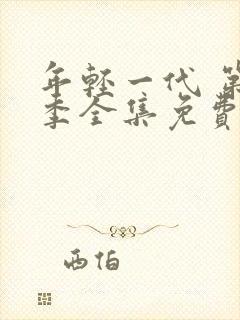 年轻一代 第
季全集免费
西伯